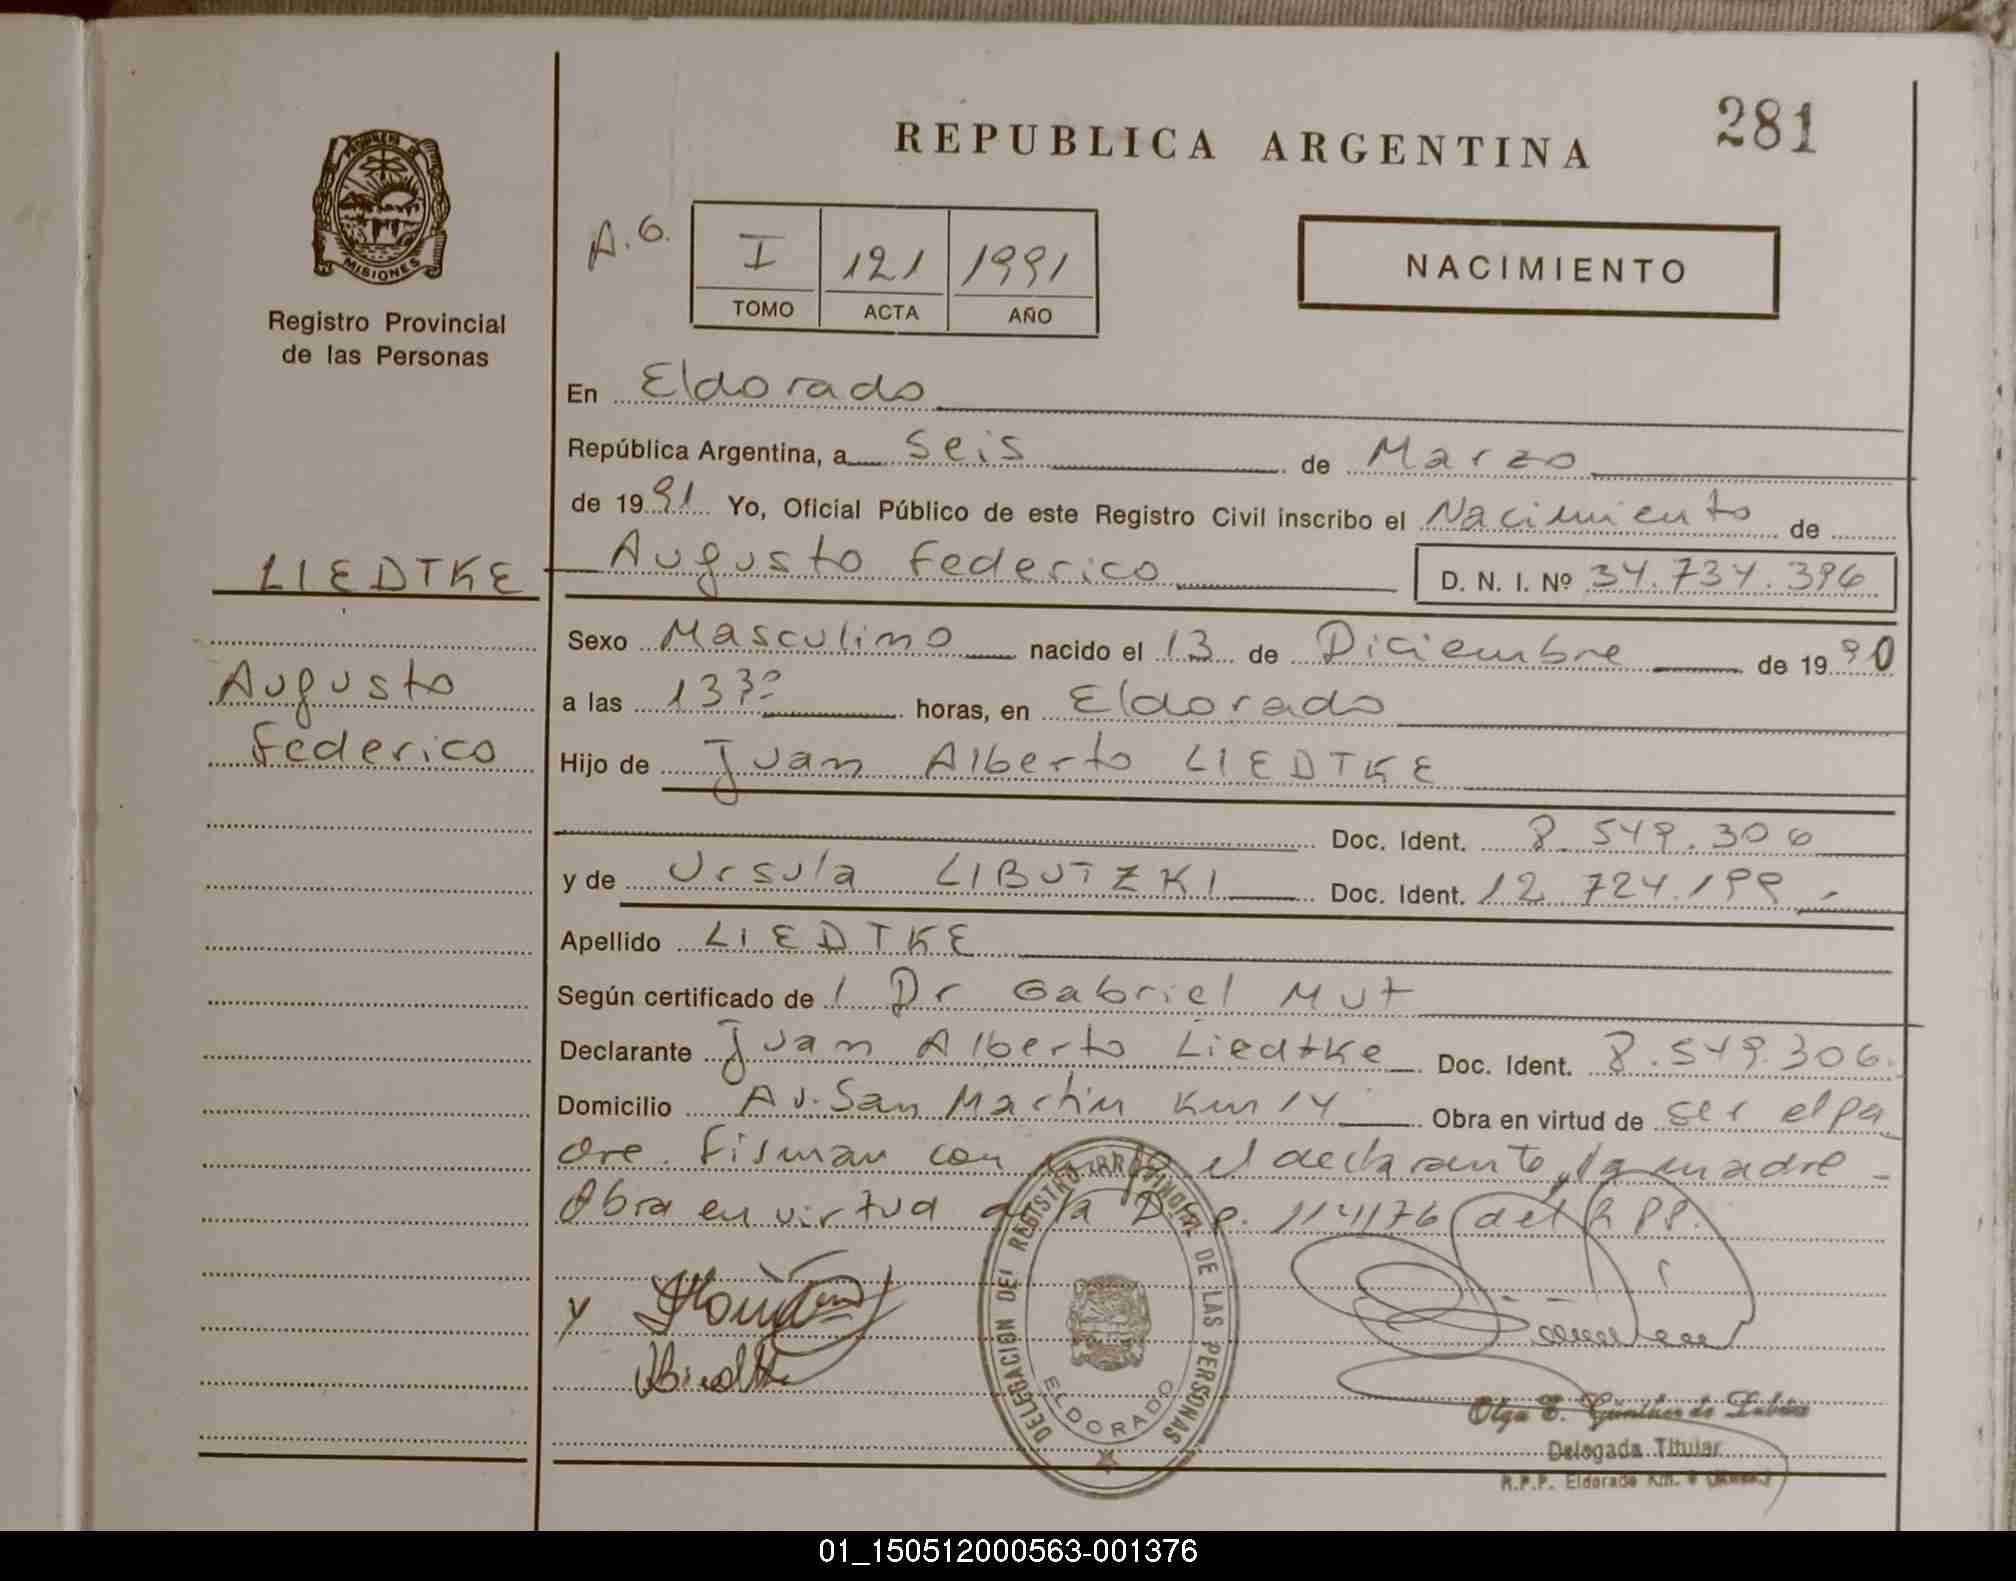 281
REPUBLICA ARGENTINA
MISIONES
Registro Provincial
de las Personas
A.G.
I 121 1991
TOMO ACTA AÑO
NACIMIENTO
En Eldorado
República Argentina, a Seis de Marzo
de 1991 Yo, Oficial Público de este Registro Civil inscribo el Nacimiento de
LIEDTKE
Augusto Federico D. N. I. Nº 34.734.396
Sexo Masculino nacido el 13 de Diciembre de 1990
Augusto
Federico
a las 13 30 horas, en Eldorado
Hijo de Juan Alberto LIEDTKE
Doc. Ident. 8.549.306
y de Ursula LIBUTZKI Doc. Ident. 12.724.199
Apellido LIEDTKE
Según certificado de / Dr Gabriel Mut
Declarante Juan Alberto Liedtke Doc. Ident. 8.549.306.
Domicilio Av. San Martin Km 14 Obra en virtud de ser el pa
dre. Firman con el declarante, la madre -
Obra en virtud de la Disp. 1141/76 del R.P.P.
y
DELEGACION DEL REGISTRO PROVINCIAL DE LAS PERSONAS
ELDORADO
Olga E. Günther de
Delegada Titular
R.P.P. Eldorado Km. 9
01_150512000563-001376